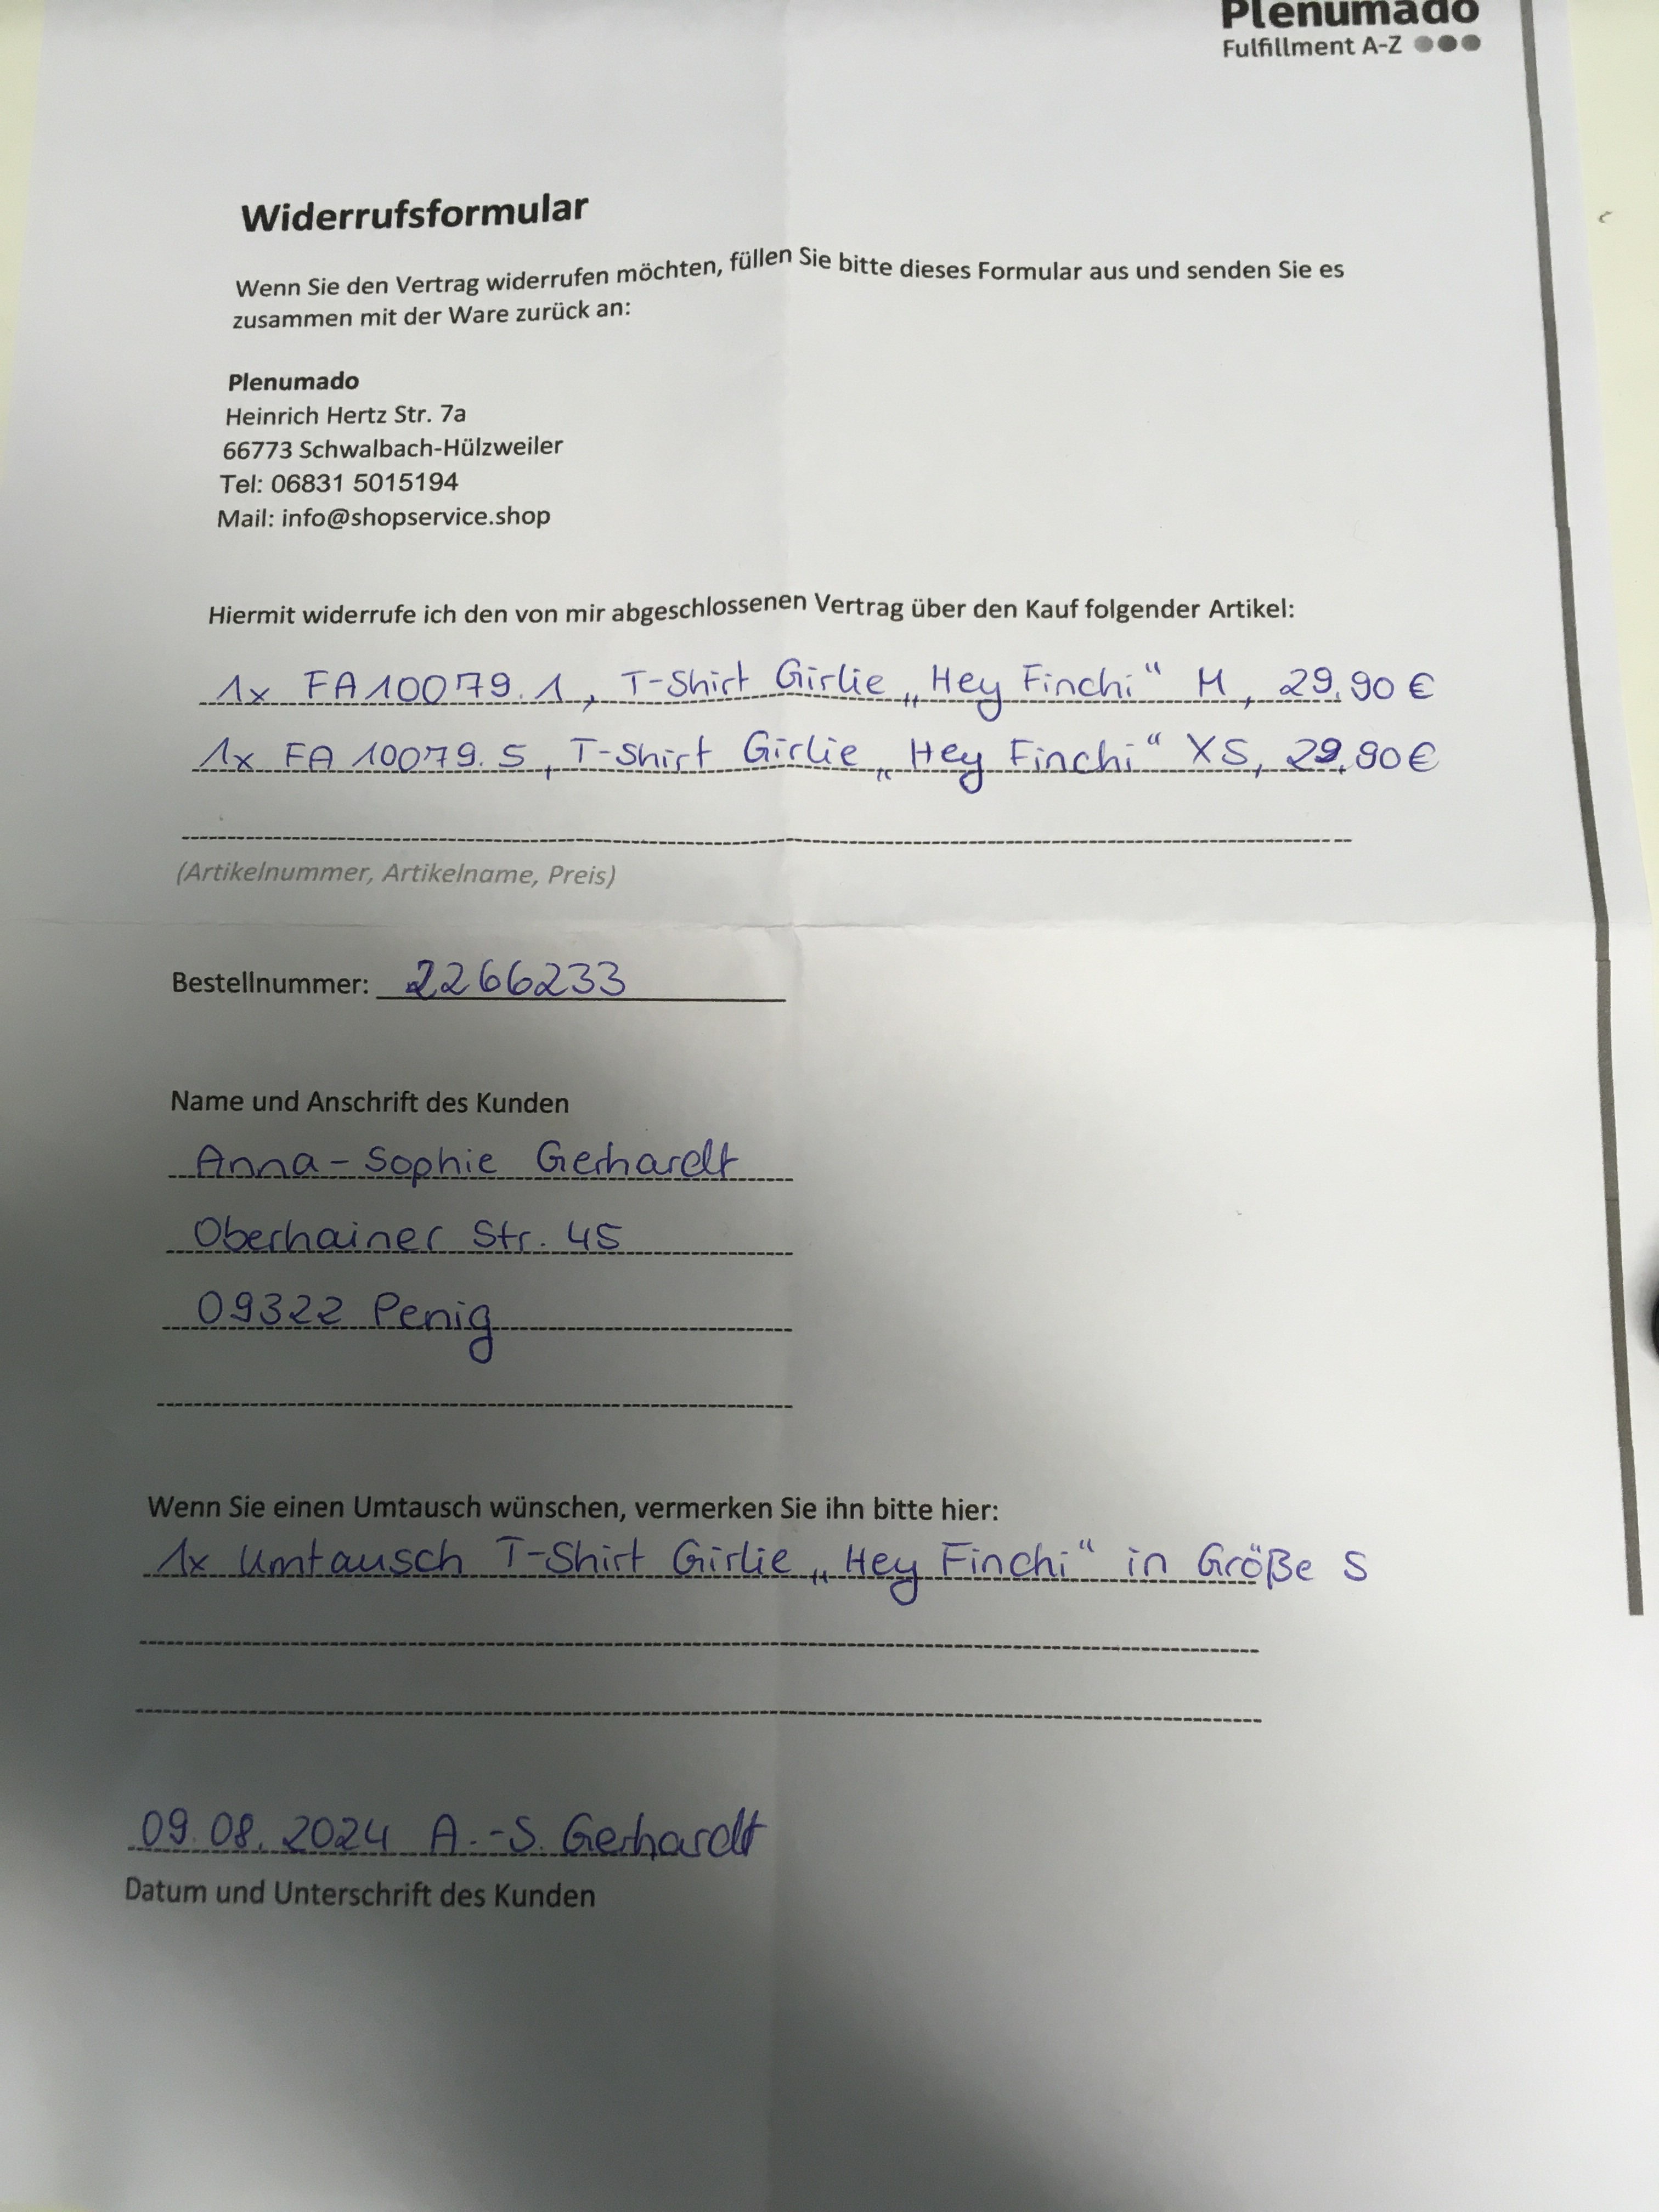 Plenumado
Fulfillment A-Z
Widerrufsformular
Wenn Sie den Vertrag widerrufen möchten, füllen Sie bitte dieses Formular aus und senden Sie es
zusammen mit der Ware zurück an:
Plenumado
Heinrich Hertz Str. 7a
66773 Schwalbach-Hülzweiler
Tel: 06831 5015194
Mail: info@shopservice.shop
Hiermit widerrufe ich den von mir abgeschlossenen Vertrag über den Kauf folgender Artikel:
1x FA10079.1, T-Shirt Girlie „Hey Finchi“ M, 29,90 €
1x FA 10079.5, T-Shirt Girlie „Hey Finchi“ XS, 29,90€
(Artikelnummer, Artikelname, Preis)
Bestellnummer: 2266233
Name und Anschrift des Kunden
Anna-Sophie Gerhardt
Oberhainer Str. 45
09322 Penig
Wenn Sie einen Umtausch wünschen, vermerken Sie ihn bitte hier:
1x Umtausch T-Shirt Girlie „Hey Finchi“ in Größe S
09.08.2024 A.-S. Gerhardt
Datum und Unterschrift des Kunden